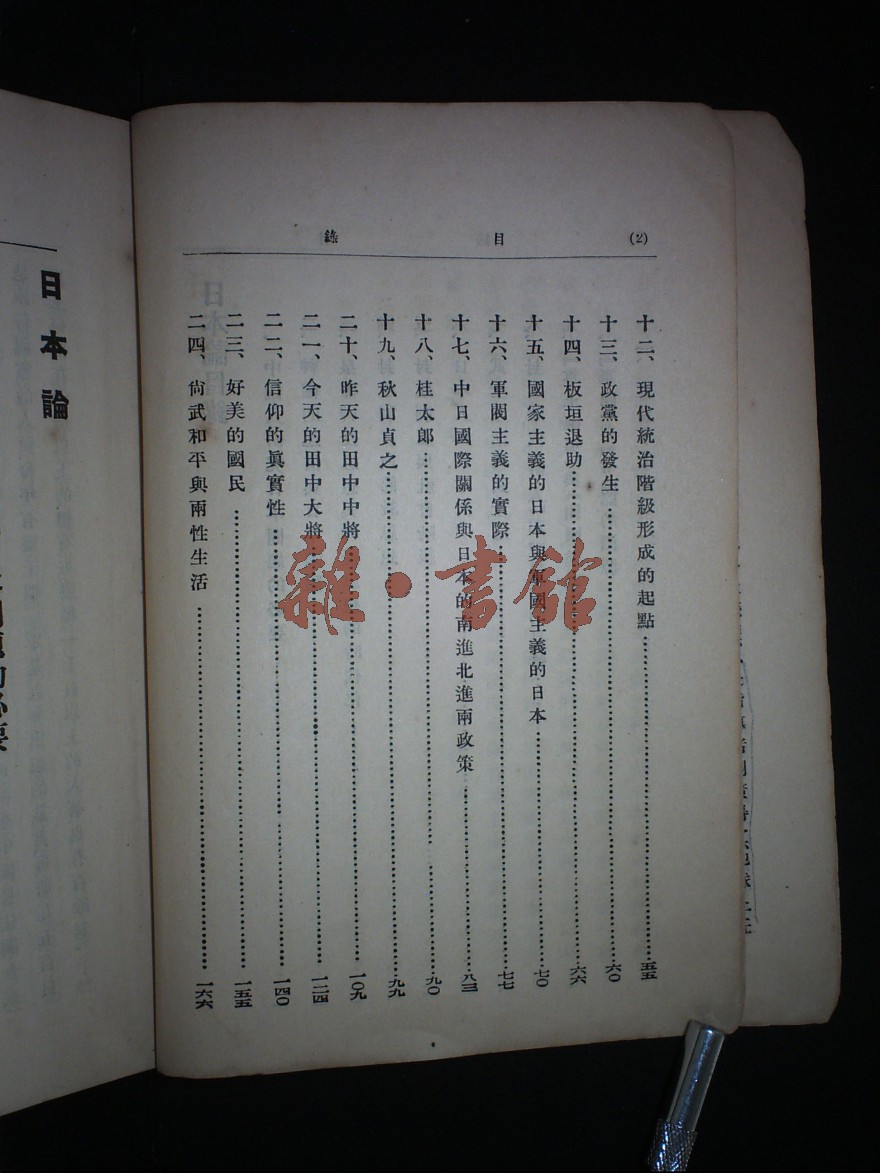 (2) 目 錄
十二、現代統治階級形成的起點……五五
十三、政黨的發生……六〇
十四、板垣退助……六六
十五、國家主義的日本與軍國主義的日本……七〇
十六、軍閥主義的實際……七七
十七、中日國際關係與日本的南進北進兩政策……八三
十八、桂太郎……九〇
十九、秋山貞之……九九
二十、昨天的田中中將……一〇九
二一、今天的田中大將……一二四
二二、信仰的眞實性……一四〇
二三、好美的國民……一五五
二四、尙武和平與兩性生活……一六六
日本論
雜·書館